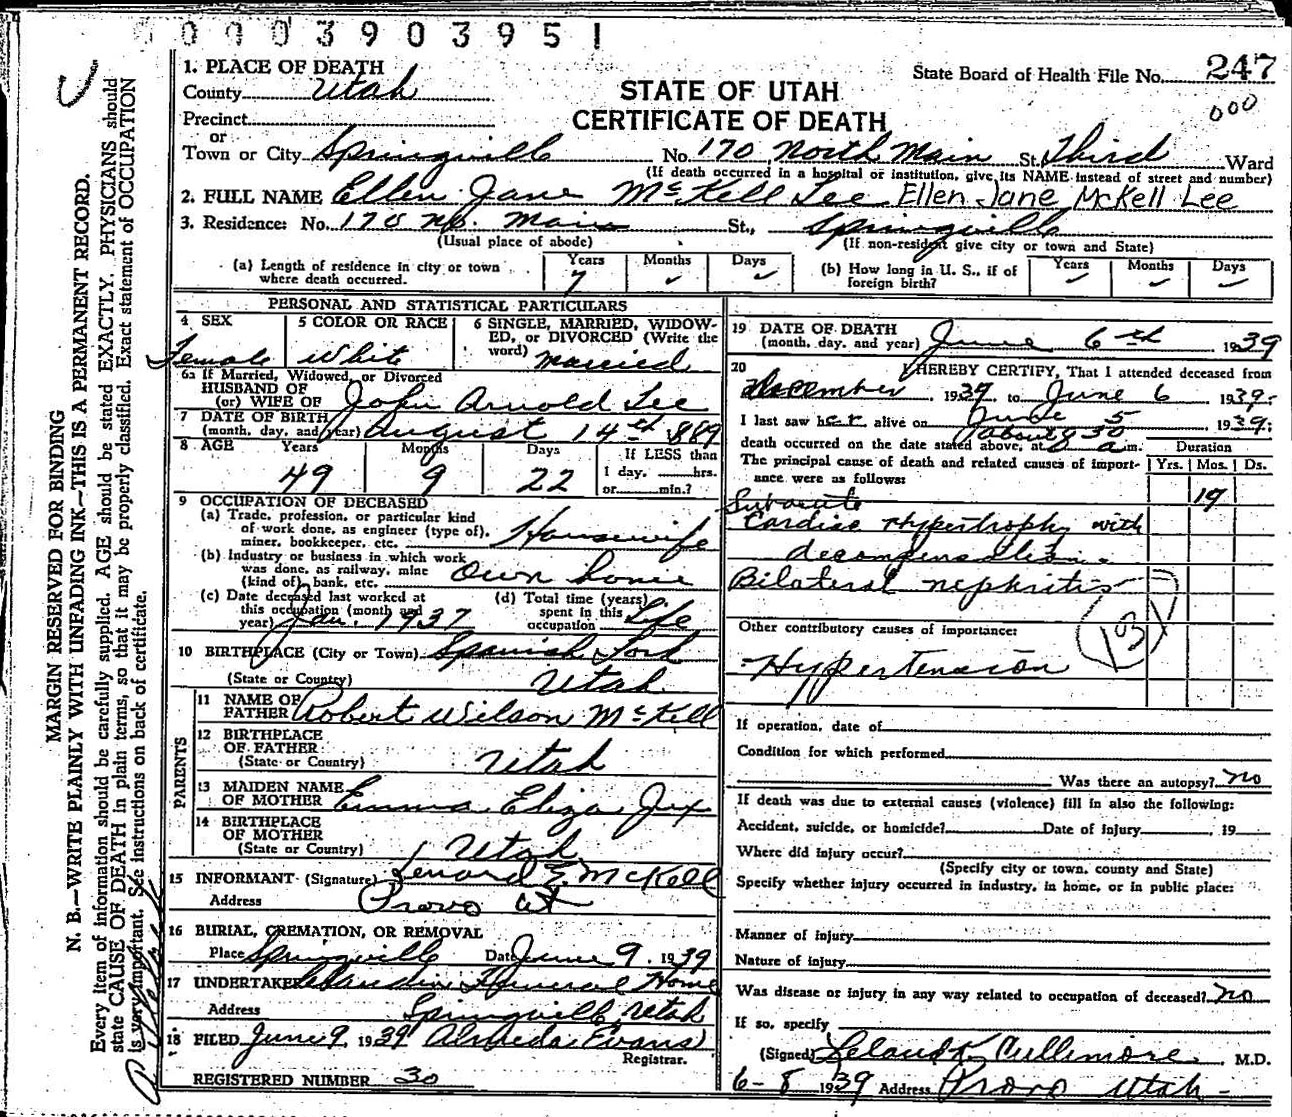 0003903951
1. PLACE OF DEATH
County Utah
Precinct
or
Town or City Springville No. 170 North Main St. Third Ward
(If death occurred in a hospital or institution, give its NAME instead of street and number)
State Board of Health File No. 247
000
STATE OF UTAH
CERTIFICATE OF DEATH
2. FULL NAME Ellen Jane McKell Lee Ellen Jane McKell Lee
3. Residence: No. 170 No. Main St., Springville
(Usual place of abode) (If non-resident give city or town and State)
(a) Length of residence in city or town where death occurred. Years 7 Months ✓ Days ✓
(b) How long in U. S., if of foreign birth? Years ✓ Months ✓ Days ✓
PERSONAL AND STATISTICAL PARTICULARS
4 SEX Female
5 COLOR OR RACE White
6 SINGLE, MARRIED, WIDOWED, OR DIVORCED (Write the word) Married
6a If Married, Widowed, or Divorced
HUSBAND OF
(or) WIFE OF John Arnold Lee
7 DATE OF BIRTH
(month, day, and year) August 14th 1889
8 AGE Years 49 Months 9 Days 22
If LESS than
1 day, hrs.
or min.?
9 OCCUPATION OF DECEASED
(a) Trade, profession, or particular kind of work done, as engineer (type of), miner, bookkeeper, etc. Housewife
(b) Industry or business in which work was done, as railway, mine (kind of), bank, etc. Own home
(c) Date deceased last worked at this occupation (month and year) Jan. 1937
(d) Total time (years) spent in this occupation Life
10 BIRTHPLACE (City or Town) Spanish Fork
(State or Country) Utah
PARENTS
11 NAME OF FATHER Robert Wilson McKell
12 BIRTHPLACE OF FATHER
(State or Country) Utah
13 MAIDEN NAME OF MOTHER Emma Eliza Jex
14 BIRTHPLACE OF MOTHER
(State or Country) Utah
15 INFORMANT (Signature) Lenard E. McKell
Address Provo Ut
16 BURIAL, CREMATION, OR REMOVAL
Place Springville Date June 9, 1939
17 UNDERTAKER Funeral Home
Address Springville, Utah
18 FILED June 9, 1939 Almeda Evans
Registrar.
REGISTERED NUMBER 30
19 DATE OF DEATH
(month, day, and year) June 6th 1939
20 I HEREBY CERTIFY, That I attended deceased from
December, 1937, to June 6 1939.
I last saw her alive on June 5 1939;
about 9 30
death occurred on the date stated above, at a m.
The principal cause of death and related causes of importance were as follows:
Duration
Yrs. Mos. Ds.
19
Subacute
Cardiac Hypertrophy with
decompensation.
Bilateral nephritis
Other contributory causes of importance:
Hypertension
If operation, date of
Condition for which performed
Was there an autopsy? No
If death was due to external causes (violence) fill in also the following:
Accident, suicide, or homicide? Date of injury , 19
Where did injury occur?
(Specify city or town, county and State)
Specify whether injury occurred in industry, in home, or in public place:
Manner of injury
Nature of injury
Was disease or injury in any way related to occupation of deceased? No
If so, specify
(Signed) Leland K. Cullimore, M.D.
6-8 1939 Address Provo Utah
MARGIN RESERVED FOR BINDING
N. B.—WRITE PLAINLY WITH UNFADING INK—THIS IS A PERMANENT RECORD.
Every item of information should be carefully supplied. AGE should be stated EXACTLY. PHYSICIANS should
state CAUSE OF DEATH in plain terms, so that it may be properly classified. Exact statement of OCCUPATION
is very important. See instructions on back of certificate.